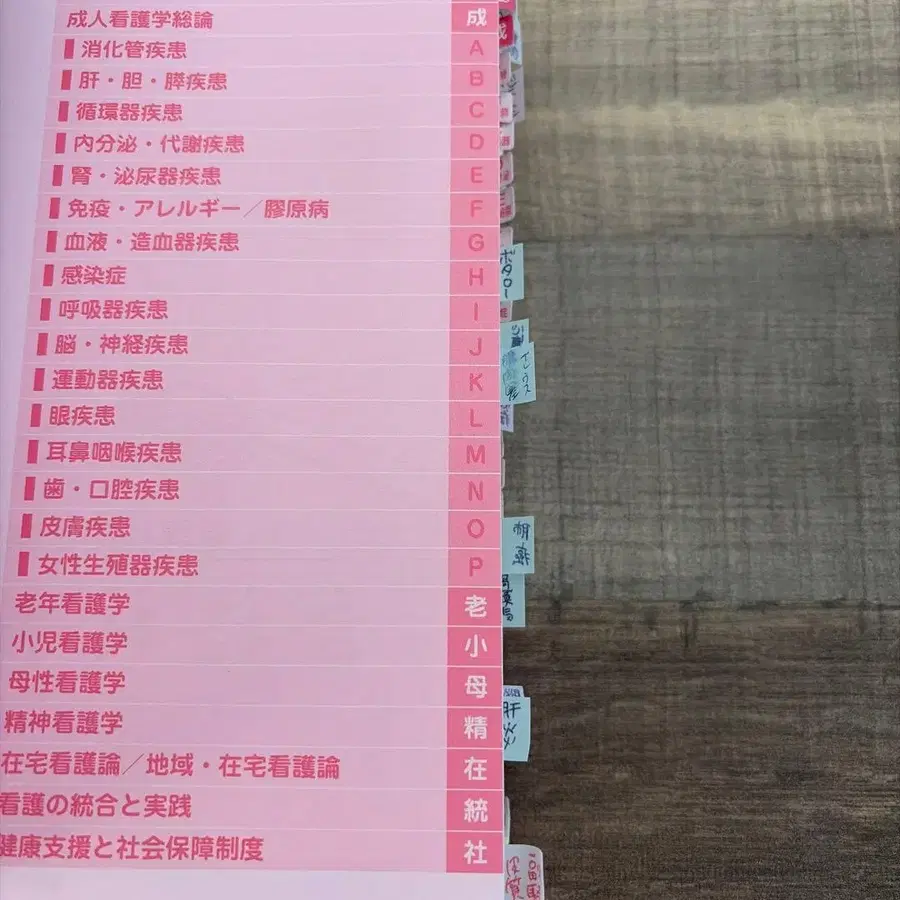 成人看護学総論 成
消化管疾患 A
肝・胆・膵疾患 B
循環器疾患 C
内分泌・代謝疾患 D
腎・泌尿器疾患 E
免疫・アレルギー／膠原病 F
血液・造血器疾患 G
感染症 H
呼吸器疾患 I
脳・神経疾患 J
運動器疾患 K
眼疾患 L
耳鼻咽喉疾患 M
歯・口腔疾患 N
皮膚疾患 O
女性生殖器疾患 P
老年看護学 老
小児看護学 小
母性看護学 母
精神看護学 精
在宅看護論／地域・在宅看護論 在
看護の統合と実践 統
健康支援と社会保障制度 社
ボタロー
イレウス